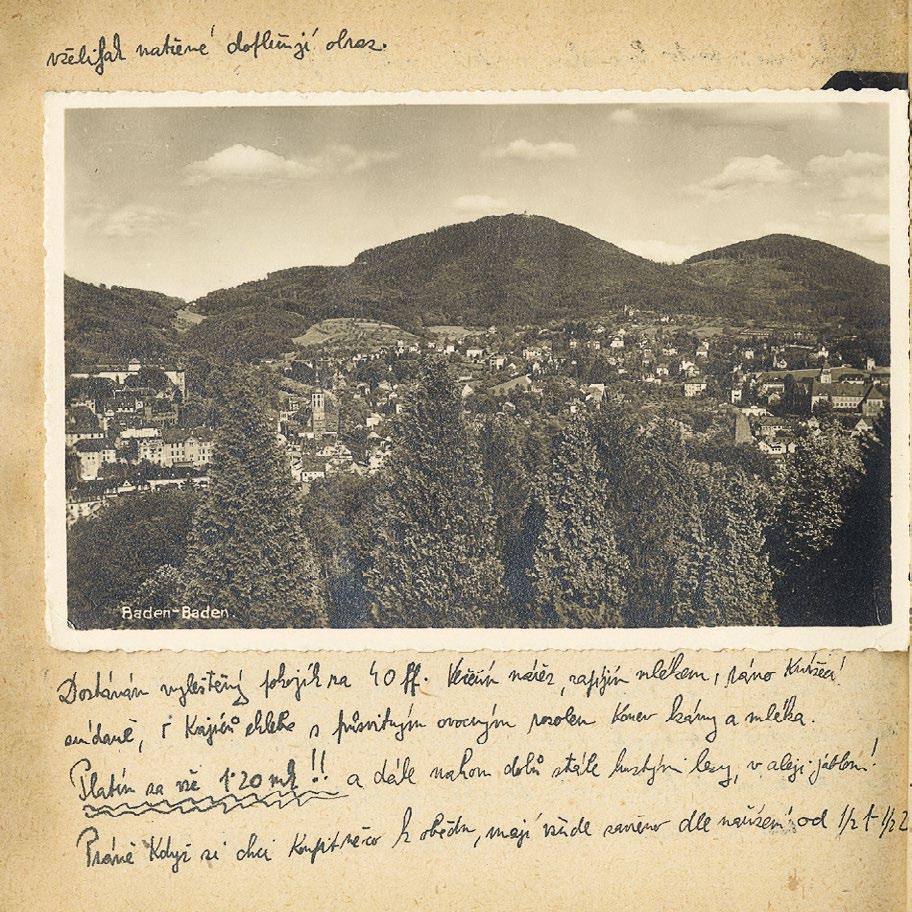 všelijak natřené doplňují obraz.
Baden-Baden.
Dostávám vyleštěný pokojík za 40 ff. Večeřím nářez, zapíjím mlékem, ráno
snídaně, krajíců chleba s průsvitným ovocným rosolem konev kávy a mléka.
Platím za vše 1·20 mk!! a dále nahoru dolů stále hustými lesy, v aleji jabloní!
Právě když si chci koupit něco k obědu, mají všude zavřeno dle nařízení od 1/2 1 - 1/2